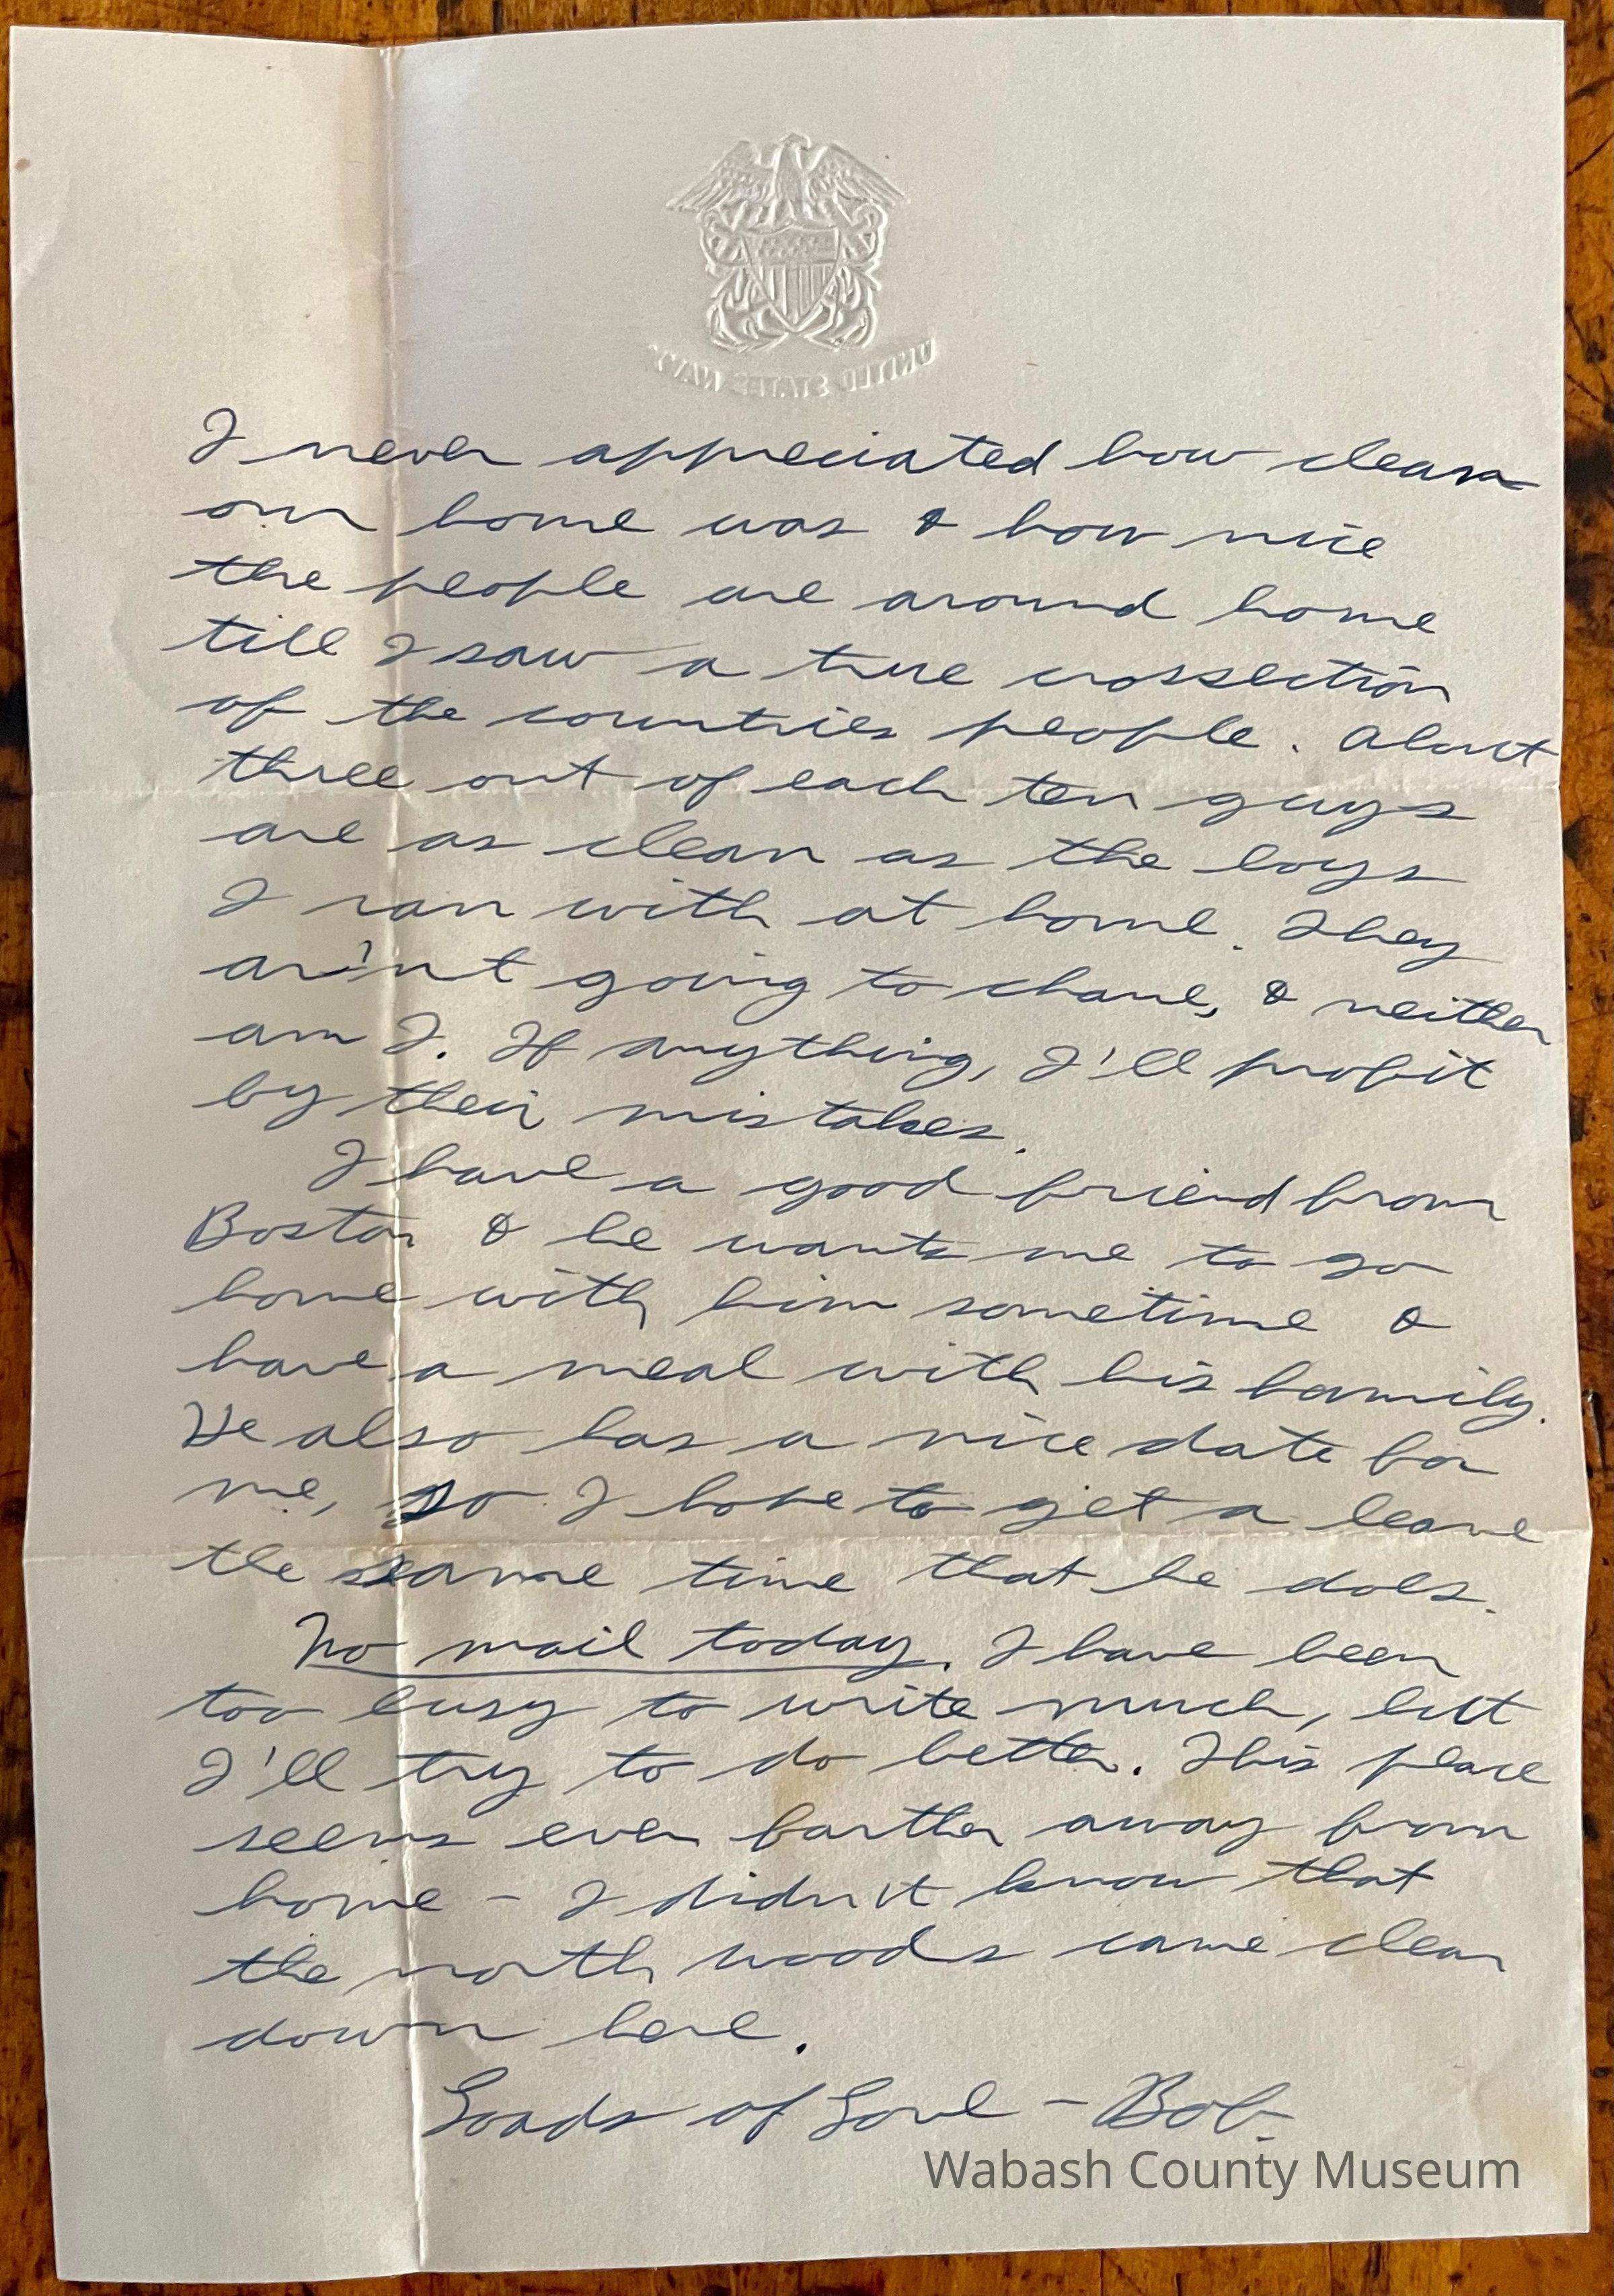 UNITED STATES NAVY
I never appreciated how clean
our home was & how nice
the people are around home
till I saw a true crossection
of the countries people. About
three out of each ten guys
are as clean as the boys
I ran with at home. They
ar'nt going to chane, & neither
am I. If anything, I'll profit
by their mistakes.
I have a good friend from
Boston & he wants me to go
home with him sometime &
have a meal with his family.
He also has a nice date for
me, so I hope to get a leave
the same time that he does.
No mail today. I have been
too busy to write much, but
I'll try to do better. This place
seems ever farther away from
home - I didn't know that
the north woods came clear
down here.
Loads of Love - Bob
Wabash County Museum